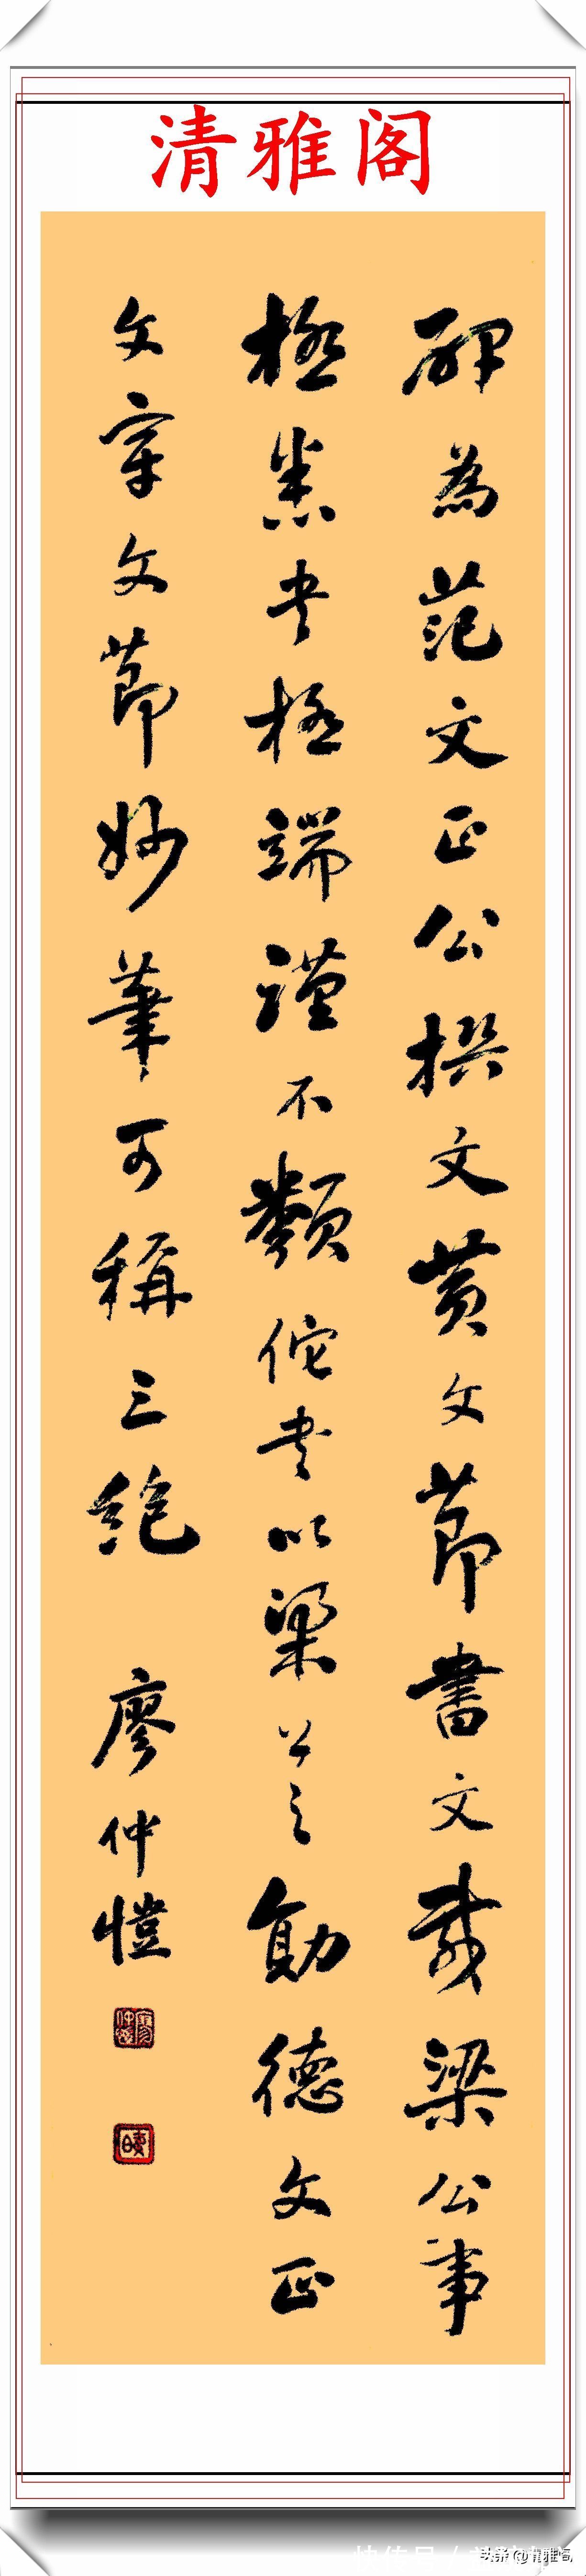 清雅阁
碑為范文正公撰文黃文節書文載梁公事
極悉書極端謹不類佗書以梁公之勛德文正
文章文節妙筆可稱三絕
廖仲愷
头条@清雅阁